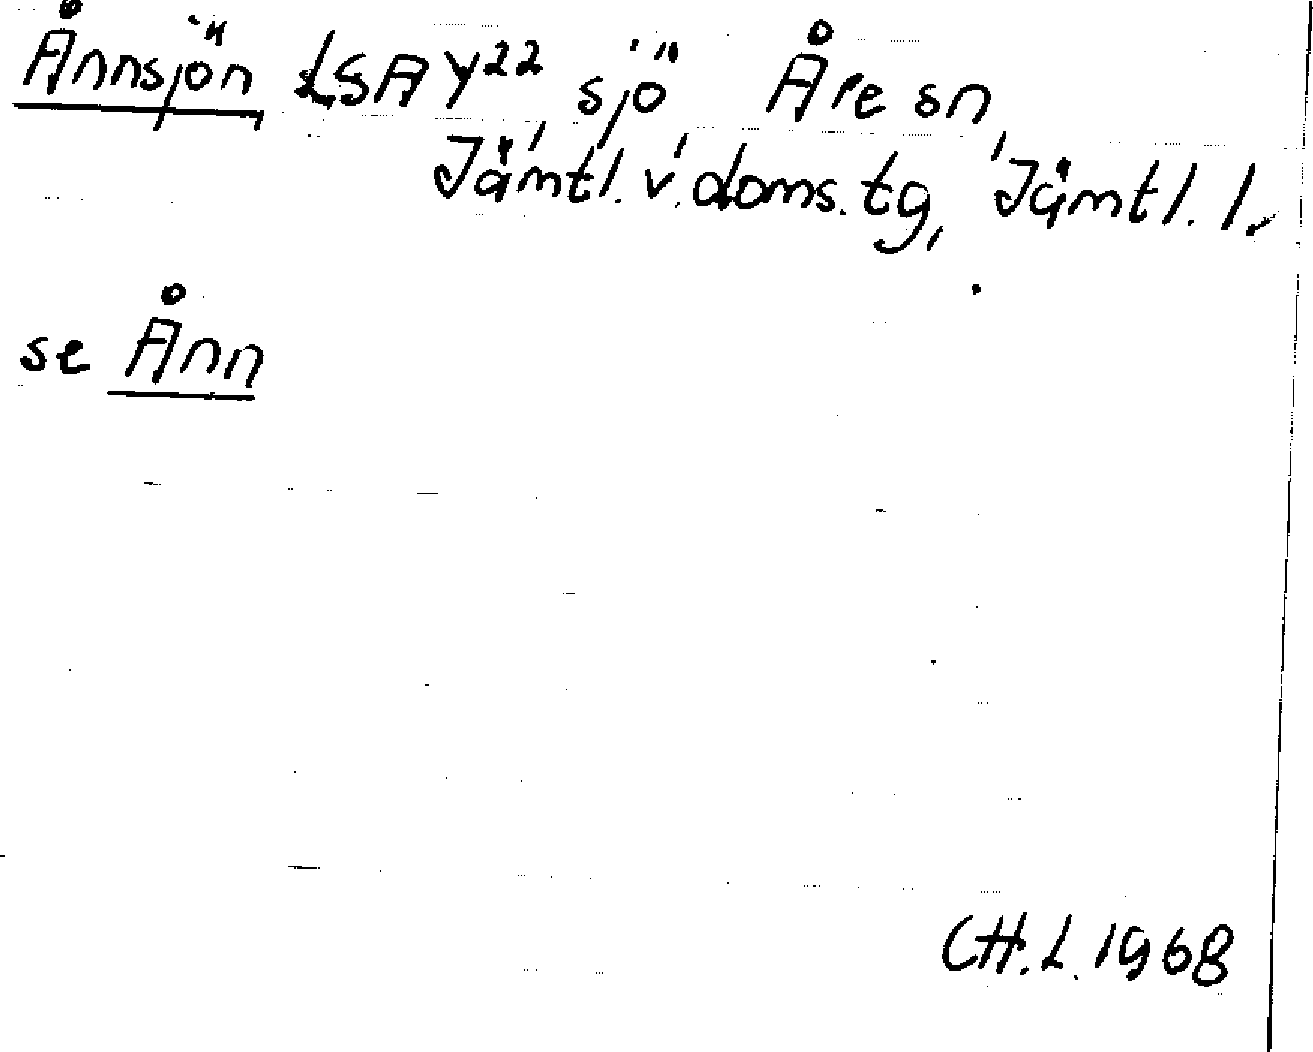 Ånnsjön LSA Y22, sjö, Åre sn,
Jämtl. v. doms. tg, Jämtl. l.
se Ånn
CH. L. 1968